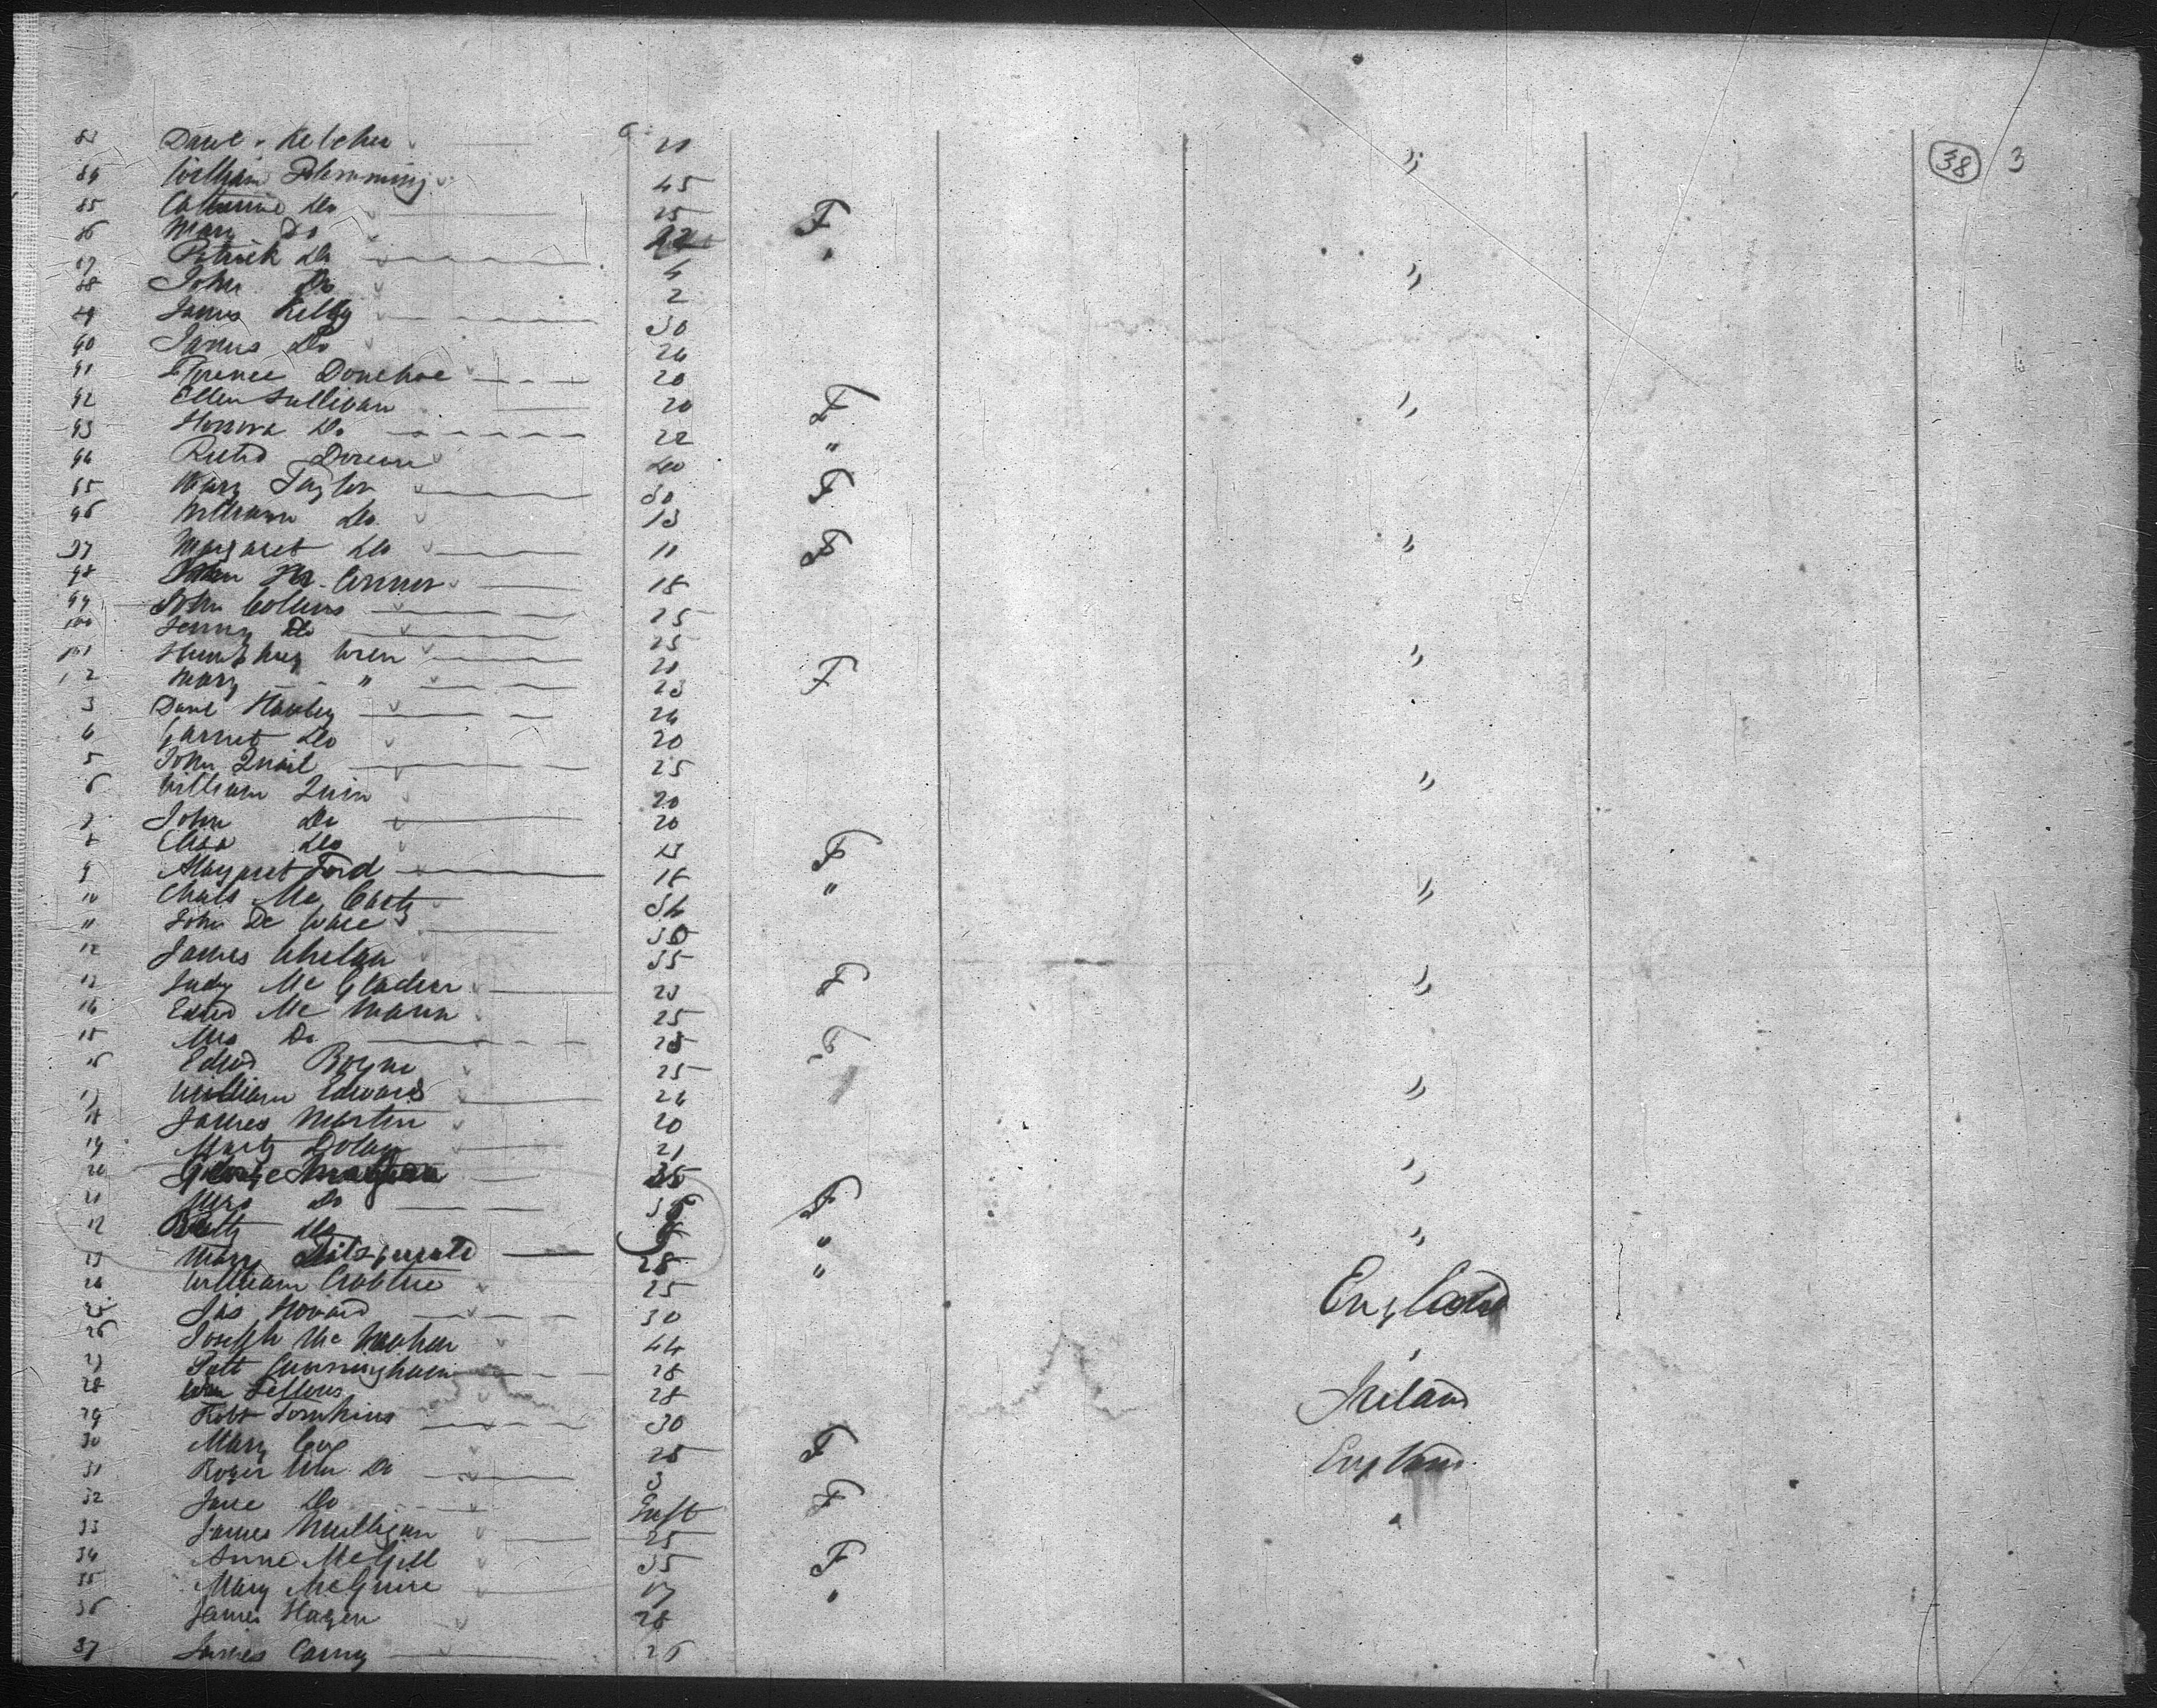 38 3
83 Danl Keleher 21 "
84 William Flemming 45
85 Catherine Do 25 F
86 Mary Do "
87 Patrick Do 4 "
88 John Do 2
89 James Kelly 30
90 James Do 24
91 Florence Donehoe 20
92 Ellen Sullivan 20 F "
93 Honora Do 22 "
94 Do
95 Mary Taylor 30 F
96 William Do 13
97 Margaret Do 11 F "
98 John 18
99 John Collins 25
100 Jenny Do 25
101 Humphrey Wren 21 "
102 Mary " 23 F
3 Danl 24
4 Garnet Do 20
5 John Quail 25
6 William Quin 20 "
7 John Do 20
8 Eliza Do 13 F
9 Margaret Ford 18 "
10 Chals Mc Carty 34 "
11 John De 30
12 James Whelan 35
13 Judy Mc 23 F "
14 Edwd Mc Mann 25
15 Mrs Do 23 F
16 Edwd 25
17 William Edwards 24 "
18 James Martin 20
19 Dolan 21
20 George 35 "
21 Mrs Do F
22 Betty Do " "
23 Mary Fitsgerald 28 "
24 William Crabtree 25 England
25 Jas Howard 30
26 Joseph Mc 44 "
27 Patt Cunningham 28
28 Wm Fellows 28 Ireland
29 Robt Tomkins 30
30 Mary Coy 25 F England
31 Roger Wm Do 3
32 Jane Do Inft F
33 James Mulligan 25 "
34 Anne McGill 35 F
35 Mary McGuire 17 "
36 James Hagen 28
37 James Carny 26